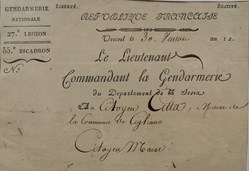 GENDARMERIE
NATIONALE
27.e LÉGION
55.e ESCADRON
N.o
LIBERTÉ. ÉGALITÉ.
RÉPUBLIQUE FRANÇAISE
le 30 an 12.
Le Lieutenant
Commandant la Gendarmerie
du Département de la Sesia
Au Citoyen Maire de
la Commune de
Citoyen Maire